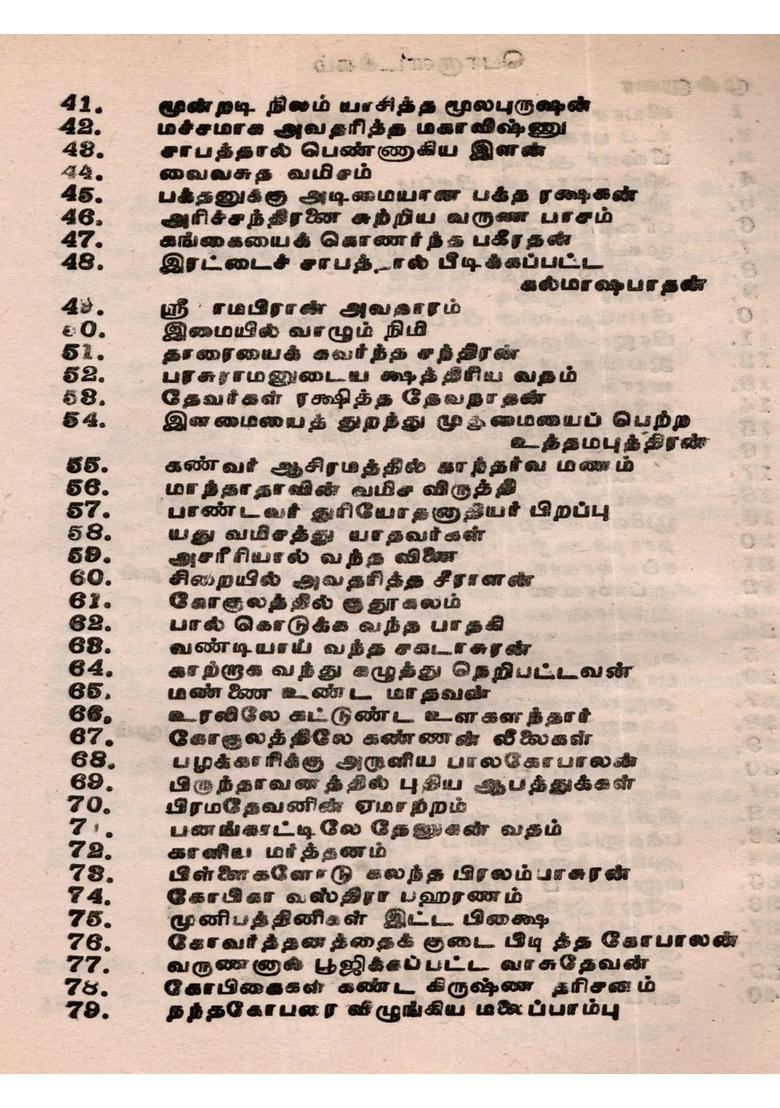 41. மூன்றடி நிலம் யாசித்த மூலபுருஷன்
42. மச்சமாக அவதரித்த மகாவிஷ்ணு
43. சாபத்தால் பெண்ணாகிய இளன்
44. வைவசுத வமிசம்
45. பக்தனுக்கு அடிமையான பக்த ரக்ஷகன்
46. அரிச்சந்திரனை சுற்றிய வருண பாசம்
47. கங்கையைக் கொணர்ந்த பகீரதன்
48. இரட்டைச் சாபத்தால் பீடிக்கப்பட்ட
கல்மாஷபாதன்
49. ஸ்ரீ ாமபிரான் அவதாரம்
50. இமையில் வாழும் நிமி
51. தாரையைக் கவர்ந்த சந்திரன்
52. பரசுராமனுடைய க்ஷத்திரிய வதம்
53. தேவர்கள் ரக்ஷித்த தேவநாதன்
54. இளமையைத் துறந்து முதுமையைப் பெற்ற
உத்தமபுத்திரன்
55. கண்வர் ஆசிரமத்தில் காந்தர்வ மணம்
56. மாந்தாதாவின் வமிச விருத்தி
57. பாண்டவர் துரியோதனாதியர் பிறப்பு
58. யது வமிசத்து யாதவர்கள்
59. அசரீரியால் வந்த வினை
60. சிறையில் அவதரித்த சீராளன்
61. கோகுலத்தில் குதூகலம்
62. பால் கொடுக்க வந்த பாதகி
63. வண்டியாய் வந்த சகடாசுரன்
64. காற்றாக வந்து கழுத்து நெறிபட்டவன்
65. மண்ணை உண்ட மாதவன்
66. உரலிலே கட்டுண்ட உளகளந்தார்
67. கோகுலத்திலே கண்ணன் லீலைகள்
68. பழக்காரிக்கு அருளிய பாலகோபாலன்
69. பிருந்தாவனத்தில் புதிய ஆபத்துக்கள்
70. பிரமதேவனின் ஏமாற்றம்
71. பனங்காட்டிலே தேனுகன் வதம்
72. காளிய மர்த்தனம்
73. பிள்ளைகளோடு கலந்த பிரலம்பாசுரன்
74. கோபிகா வஸ்திரா பஹரணம்
75. முனிபத்தினிகள் இட்ட பிக்ஷை
76. கோவர்த்தனத்தைக் குடை பிடித்த கோபாலன்
77. வருணனால் பூஜிக்கப்பட்ட வாசுதேவன்
78. கோபிகைகள் கண்ட கிருஷ்ண தரிசனம்
79. நந்தகோபரை விழுங்கிய மலைப்பாம்பு